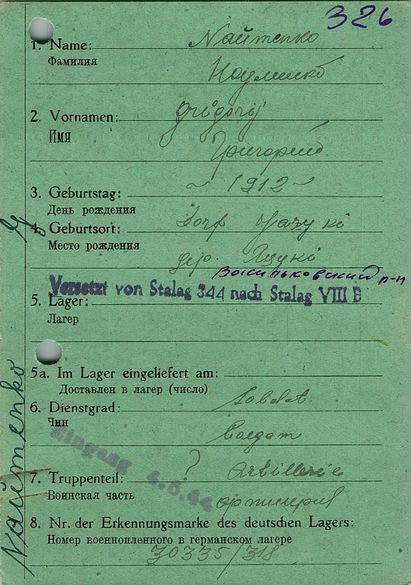 326
1. Name: Najmenko
Фамилия
Науменко
2. Vornamen: Grigorij
Имя
Григорий
3. Geburtstag: ~ 1912 ~
День рождения
4. Geburtsort: Dorf
Место рождения
дер. Яцуки
Васильковский р-н
Versetzt von Stalag 344 nach Stalag VIII B
5. Lager:
Лагер
5a. Im Lager eingeliefert am:
Доставлен в лагер (число)
6. Dienstgrad: Soldat
Чин
Солдат
Eingang 4.5.44
7. Truppenteil: ? Artillerie
Воинская часть артилерия
8. Nr. der Erkennungsmarke des deutschen Lagers:
Номер военнопленного в германском лагере
30335/318
Najmenko